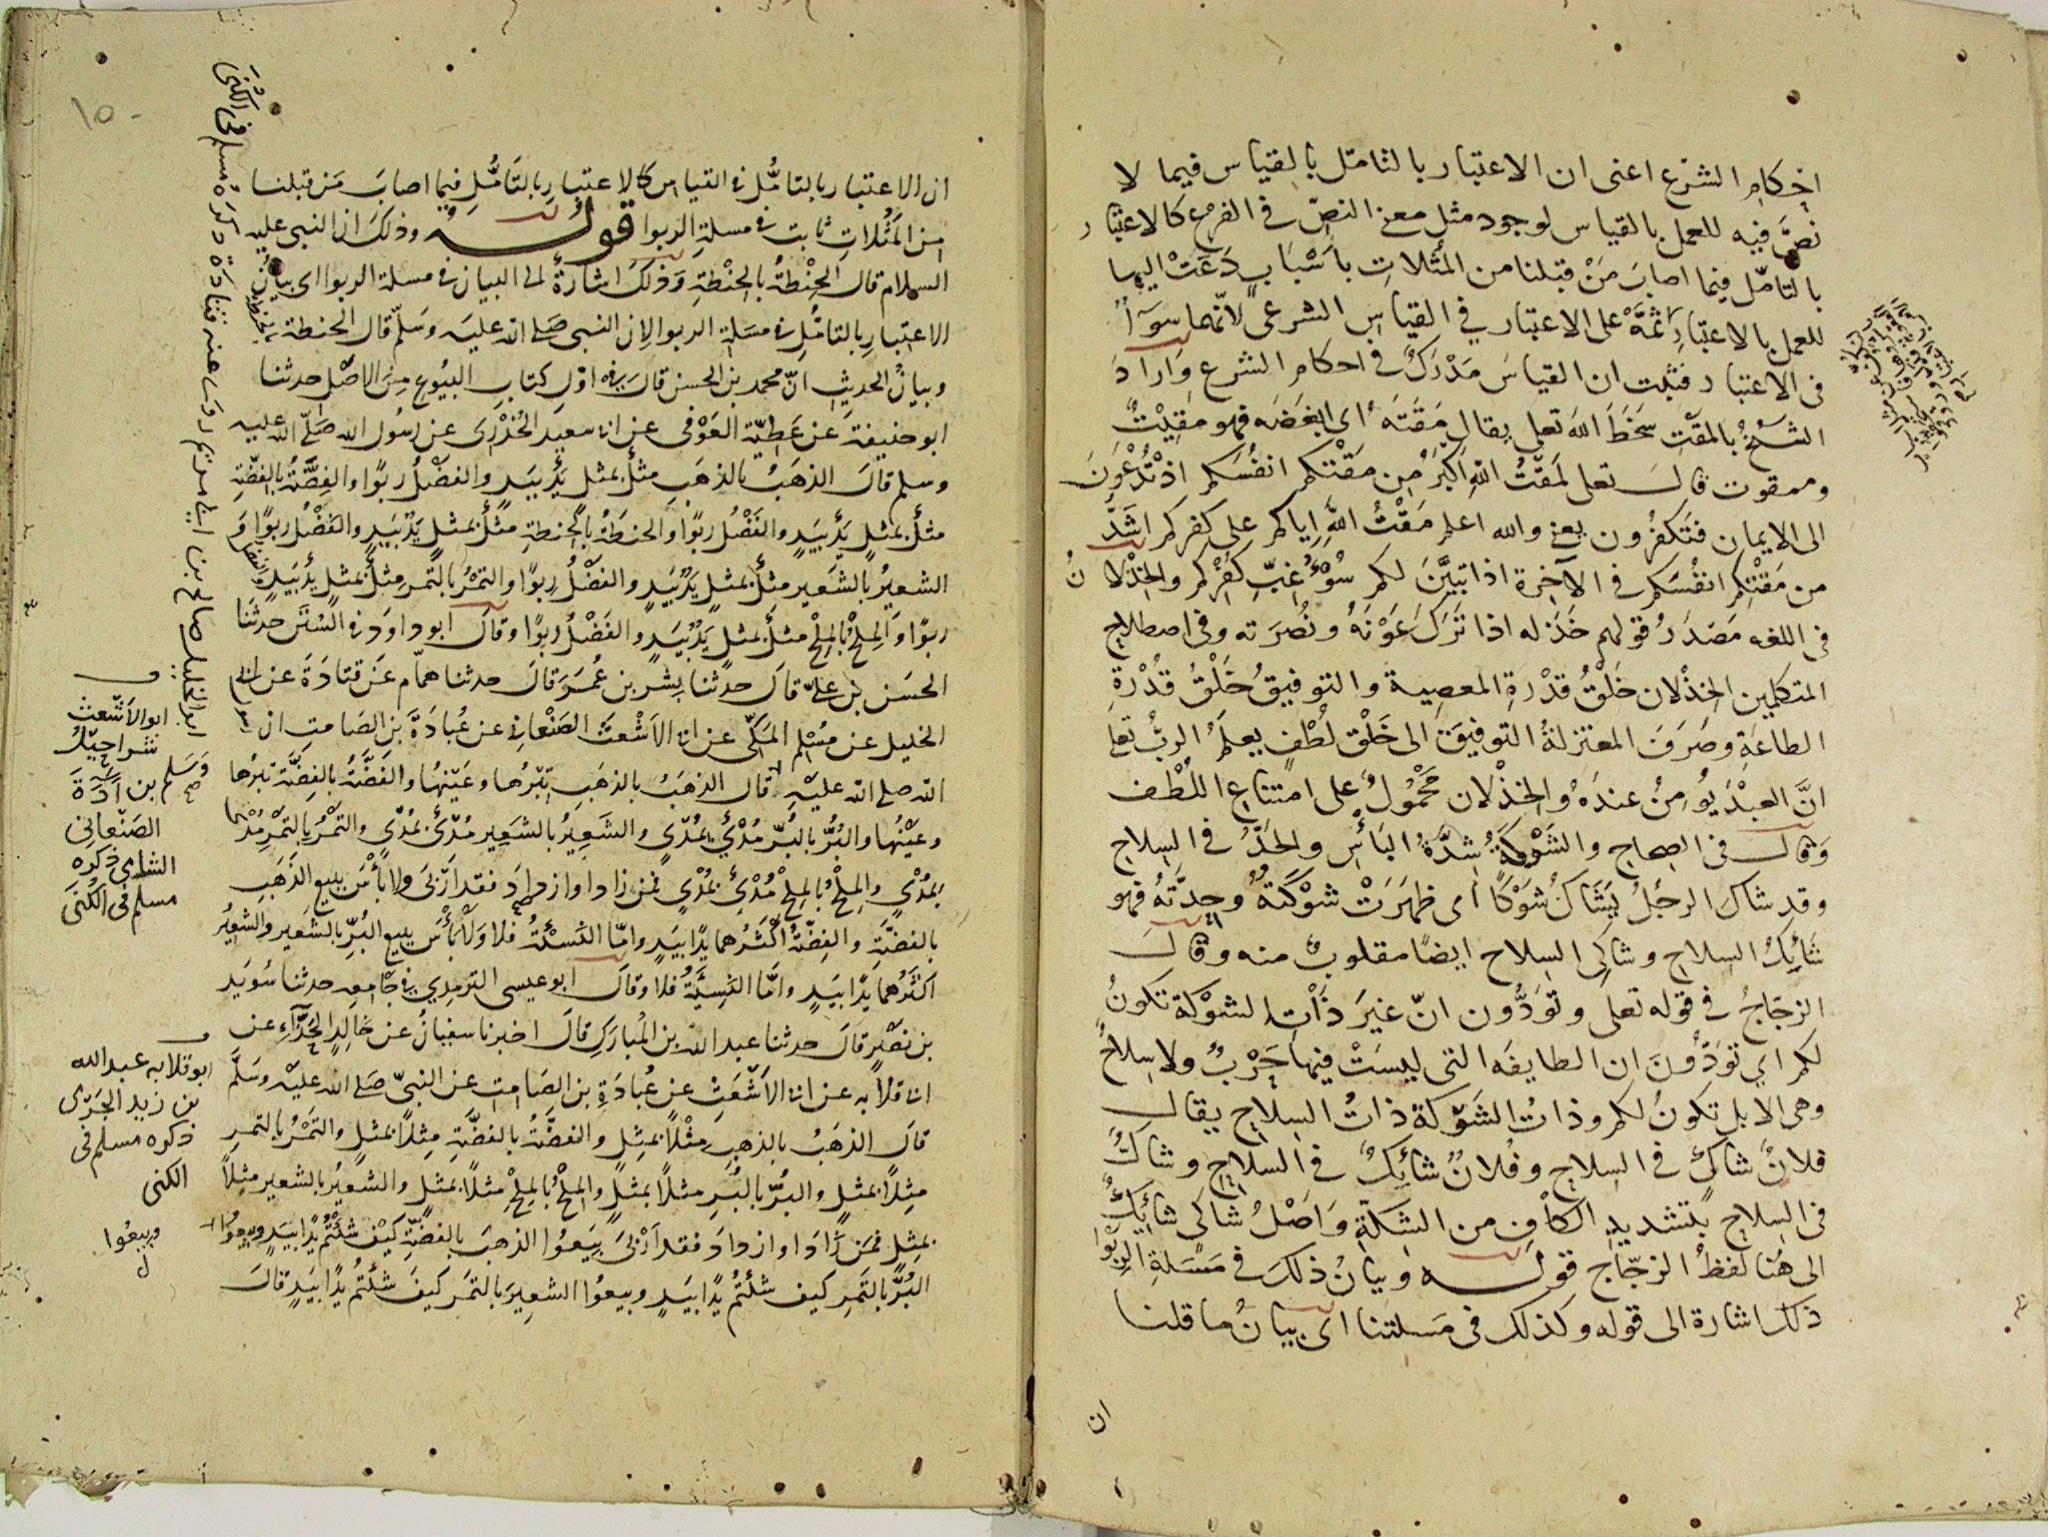 احكام الشرع اعنى ان الاعتبار بالتامل بالقياس فيما لا
نصَّ فيه للعمل بالقياس لوجود مثل معنى النصّ فى الفرع كالاعتبار
بالتامّل فيما اصابَ مَنْ قبلنا من المثُلاتِ باَسْبابٍ دَعَتْ اليها
للعمل بالاعتبار ثمَّةَ على الاعتبار في القياسِ الشرعى لانّهما سوآءٌ
فى الاعتبار فثبت ان القياسَ مَدْرَكٌ فى احكام الشرع وَارادَ
الشيْخُ بالمَقْتِ سَخَطَ اللهَ تعلى يقال مَقَتَه اى ابغَضَه فهو مَقِيْتٌ
وممقوت قالَ تعلى لَمَقْتُ اللهِ اَكْبَرُ مِن مَقْتكم انفُسَكم اذ تُدْعَوْنَ
الى الايمان فتَكفرُون يعنى والله اعلم مَقْتُ اللهِ اياكم على كفركم اشَدُّ
من مَقْتِكم انفُسَكم فى الآخرة اذا تبيَّنَ لكم سُوْءُ غِبِّ كُفْرِكم والخِذْلانُ
فى اللغه مَصْدَرُ قولهم خَذَله اذا تَرَكَ عَوْنَهُ ونُصْرَته وفى اصطلاح
المتكلمين الخِذْلان خَلْقُ قدْرةِ المعصية والتوفيقُ خَلْقُ قُدْرةِ
الطاعَةِ وصَرَفَ المعتزلةُ التوفيقَ الى خَلْقِ لُطْفٍ يعلَمُ الربُّ تعلى
انَّ العبْدَ يُومِنُ عندَهُ والخِذْلان مَحْمُولٌ على امتناعِ اللُطْف
وَقالَ فى الصحاح والشَوْكَةُ شِدَّةُ البَأسِ والحَدُّ فى السِلاحِ
وقد شاكَ الرجُلُ يَشَاكُ شَوْكًا اى ظهَرَتْ شَوْكَتهُ وحِدَّتهُ فهو
شَائِكُ السِلاحِ وشاكِى السِلاح ايضًا مقلوبٌ منه وقالَ
الزجَاجُ فى قوله تعلى وتوَدُّون انّ غيرَ ذَاتِ الشوْكةِ تكونُ
لكم اي توَدُّونَ ان الطايفَه التى ليسَتْ فيها حَرْبٌ ولا سِلاحٌ
وهى الابل تكونُ لكم وذاتُ الشَوْكة ذاتُ السِلاحِ يقالُ
فلانٌ شاكٌ فى السِلاحِ وفلانٌ شائِكٌ فى السلاحِ وشاكٌّ
فى السِلاحِ بتشديدِ الكافِ من الشِكّةِ وَاَصْلُ شاكى شائِكٌ
الى هُنا لفظُ الزجّاج قولـه وبيانُ ذلكَ فى مَسْئلةِ الرِبوا
ذلك اشارة الى قوله وكذلك فى مَسلتنا اى بيانُ ما قلنا
ان
١٥٠
ان الاعتبار بالتامُّل فى القياس كالاعتبار بالتامُّلِ فيما اصابَ مَن قبلنا
مِن المَثُلاتِ ثابت فى مسلةِ الربوا قولُـه وذلكَ ان النبى عليه
السلام قالَ الحِنْطةُ بالحِنْطةِ وَذلكَ اشارةٌ الى البيان فى مسلة الربوا اى بيانُ
الاعتبارِ بالتامُّلِ فى مسَلةِ الربوا لان النبى صَلى الله عليه وسَلّم قال الحنطة بالحنطة
وبيانُ الحديثِ انّ محمد بن الحسن قالَ فى اوّل كتابِ البيُوعِ مِنَ الاصْل حدثنا
ابو حنيفةَ عَن عَطيّةَ العَوْفى عن ابى سعيدٍ الخُدْرى عن رسُول الله صَلّى الله عليه
وسلم قالَ الذهَبُ بالذهَبِ مثلٌ بمثلٍ يدٌ بيَدٍ والفضْلُ ربوًا والفِضّةُ بالفِضّةِ
مثلٌ بمثلٍ يدٌ بيَدٍ والفَضْلُ ربوًا والحنطةُ بالحنطةِ مثلٌ بمثلٍ يدٌ بيَدٍ والفَضْلُ ربوًا وَ
الشعيرُ بالشَعير مثلٌ بمثلٍ يَدٌ بيَدٍ والفضْلُ ربوًا والتمْرُ بالتَمر مِثلٌ بمثلٍ يدٌ بيَدٍ والفضل
ربوًا وَالمِلحُ بالمِلحْ مثلٌ بمثلٍ يَدٌ بيَدٍ والفَضْلُ ربوًا وقالَ ابو داوَدَ فى السُنَن حدثنَا
الحسَن بن علىٍّ قالَ حدثنا بِشر بن عُمَرَ قالَ حدثنا همّام عَن قتادَةَ عن ابى
الخليل عن مسْلِمٍ المكّى عن ابى الاَشْعثَ الصَنْعانى عن عُبادَةَ بن الصَامتِ ان رسول
الله صلى الله عليْه قال الذهَبُ بالذهَبِ تِبْرُها وعَيْنهُا والفضَّةُ بالفِضَّة تبرُها
وعَيْنُها والبُرُّ بالبُرّ مُدْيٌ بمُدْيٍ والشَعِيرُ بالشَعِير مدْيٌ بمُدْيٍ والتمْرُ بالتمْرِ مُدْيٌ
بمُدْيٍ والمِلحُ بالمِلحْ مُدْيٌ بمُدْيٍ فمَن زاد او ازدادَ فقد اَرْبىَ ولا بأسَ ببيع الذَهبِ
بالفضَّةِ والفِضّةُ اكْثَرُهما يدًا بيَدٍ وامّا النَسِئةُ فلا وَلا بأسَ ببيع البُرِّ بالشَعير والشعِيرُ
اكثرُهما يَدًا بيَدٍ وامَّا النَسِيَّةُ فلا وقالَ ابو عيسى الترمذي فى جَامِعه حدثنا سُوَيد
بن نصْرٍ قالَ حدثنا عبد الله بن المُبارَكِ قالَ اخبرنا سفيانُ عن خالِدٍ الحَذّآءِ عن
ابى قلابه عن ابى الاَشْعَثِ عن عُبادَةَ بن الصَامِتِ عن النبىّ صَلى الله عليْه وسَلَّم
قالَ الذهَبُ بالذهبِ مِثْلاً بمثِلٍ والفضَّةُ بالفضَّةِ مِثلاً بمثلٍ والتمْرُ بالتمرِ
مِثلاً بمثلٍ والبرُّ بالبُرِ مثلاً بمثلٍ والمِلحُ بالمِلحِ مِثلاً بمثلٍ والشعيرُ بالشعير مثلاً
بمثِلٍ فمَن زادَ او ازدادَ فقد اَرْبىَ بيَعوُا الذهبَ بالفضّةِ كيْف شئتُم يدًا بيَدٍ وبيعُوا
البُرَّ بالتَمرِ كيف شئتُم يدًا بيَدٍ وبيعوُا الشعِيرَ بالتمَر كيفَ شئتُم يدًا بيَدٍ قالَ
ابو الخليل صالح بن ابى مريم روى عنه قتادة ذكره مسلم فى الكُنَى
ابو الاَشعث
شراحيل
بن آدَةَ
الصَنعانى
الشامى ذكره
مسلم فى الكنَى
وسَلم صح
ابو قلابه عبد الله
بن زيد الجَرْمى
ذكره مسلم فى
الكنى
وبيعُوا